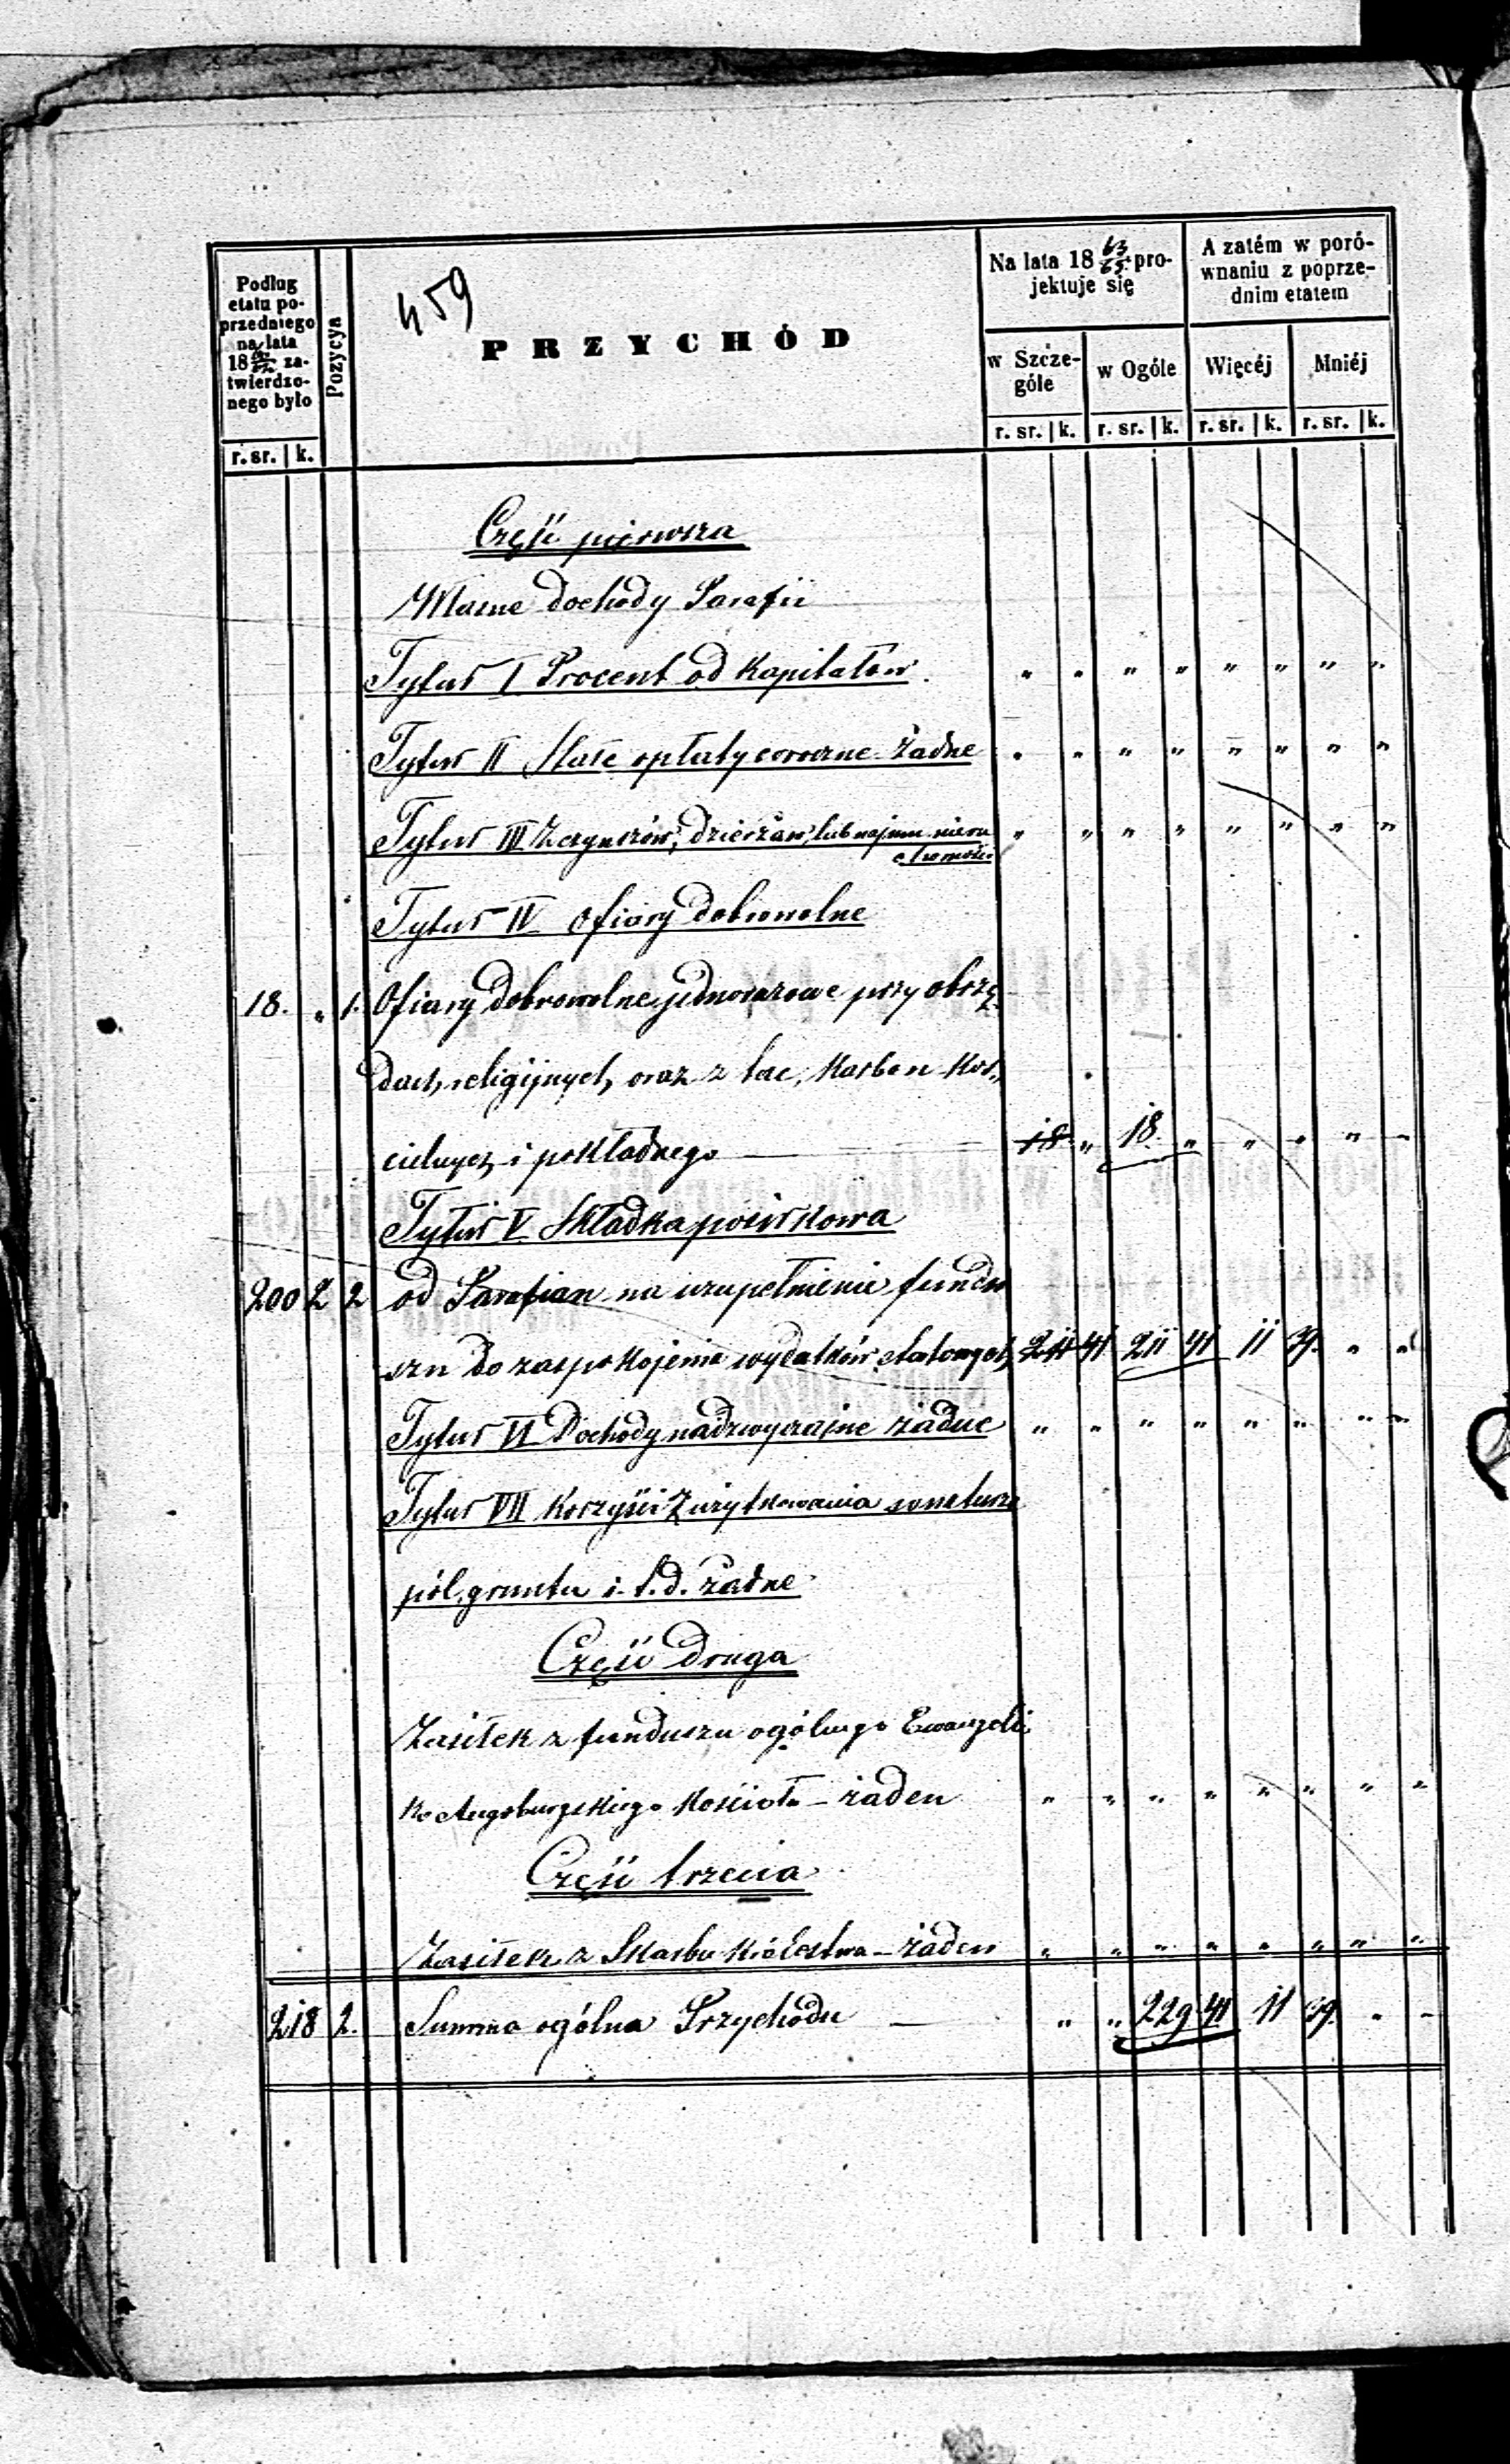 459
Podług
etatu po-
przedniego
na lata
18 60/62 za-
twierdzo-
nego było
r. sr. | k.
Pozycya
PRZYCHÓD
Na lata 18 63/65 pro-
jektuje się
w Szcze-
góle
w Ogóle
r. sr. | k. r. sr. | k.
A zatém w poró-
wnaniu z poprze-
dnim etatem
Więcéj Mniéj
r. sr. | k. r. sr. | k.
Część pierwsza
Własne dochody Parafii
Tytuł I Procent od Kapitałów. " " " " " " " "
Tytuł II Stałe opłaty coroczne żadne " " " " " " " "
Tytuł III Z czynszów, dzierżaw, lub najmu nieru " " " " " " " "
chomości
Tytuł IV Ofiary dobrowolne
18. " 1. Ofiary dobrowolne jednorazowe przy obrzę
dach religijnych, oraz z tac, Karbon Koś,
cielnych i pokładnego — 18 " 18 " " " " "
Tytuł V Składka pościkowa
200 2 2 od Parafian na uzupełnienie fundu
szu do zaspokojenia wydatków etatowych 211 41 211 41 11 39. " "
Tytuł VI Dochody nadzwyczajne żadne " " " " " " " "
Tytuł VII Korzyści z użytkowania w naturze
pól, gruntu i. t. d. żadne
Część Druga
Zasiłek z funduszu ogólnego Ewangeli
ko Augsburgskiego Kościoła – żaden " " " " " " " "
Część trzecia
Zasiłek z Skarbu Królestwa – żaden " " " " " " " "
218 2. Summa ogólna Przychodu — " " 229 41 11 39. " "